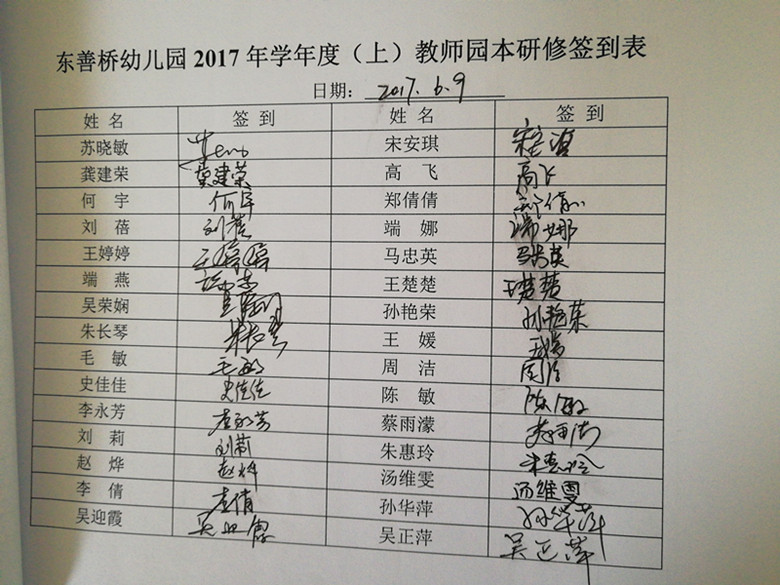 东善桥幼儿园 2017 年学年度（上）教师园本研修签到表
日期： 2017.6.9
姓 名 签 到 姓 名 签 到
苏晓敏 宋安琪
龚建荣 龚建荣 高 飞 高飞
何 宇 何宇 郑倩倩
刘 蓓 刘蓓 端 娜 端娜
王婷婷 王婷婷 马忠英 马忠英
端 燕 王楚楚 王楚楚
吴荣娴 孙艳荣 孙艳荣
朱长琴 朱长琴 王 媛
毛 敏 毛敏 周 洁 周洁
史佳佳 史佳佳 陈 敏 陈敏
李永芳 李永芳 蔡雨濛
刘 莉 刘莉 朱惠玲 朱惠玲
赵 烨 赵烨 汤维雯 汤维雯
李 倩 李倩 孙华萍 孙华萍
吴迎霞 吴正萍 吴正萍